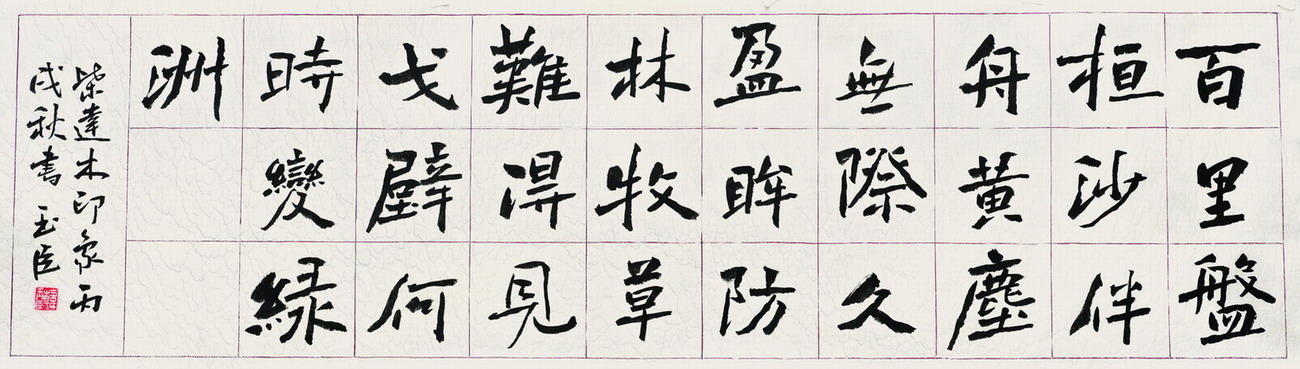 百里盤
桓沙伴
舟黃塵
無際久
盈眸防
林牧草
難淂見
戈壁何
時變緑
洲
柴達木印象丙
戌秋書 玉臣